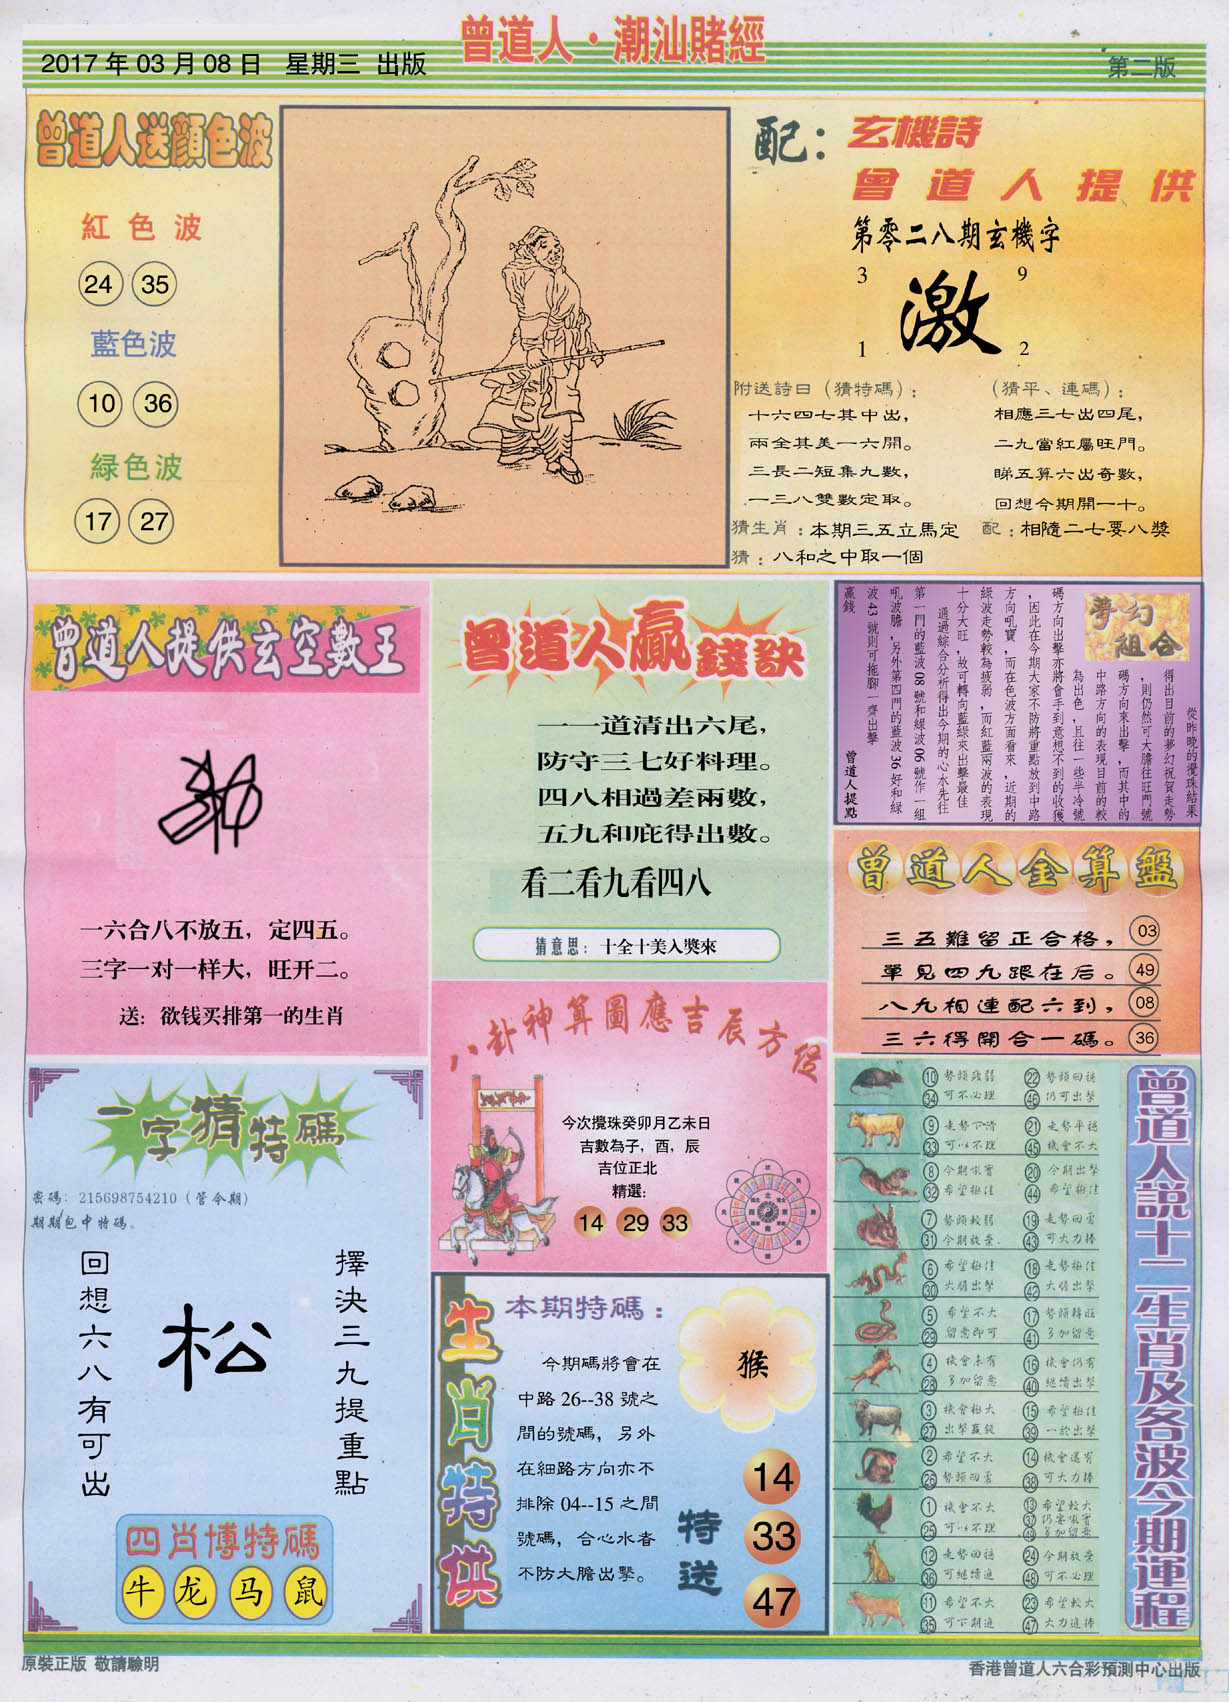 曾道人·潮汕賭經
2017年03月08日 星期三 出版
第二版
曾道人送顏色波
紅色波
24 35
藍色波
10 36
緑色波
17 27
配：玄機詩
曾道人提供
第零二八期玄機字
3 9
激
1 2
附送詩曰（猜特碼）：
十六四七其中出，
兩全其美一六開。
三長二短集九數，
一三八雙數定取。
（猜平、連碼）：
相應三七出四尾，
二九當紅屬旺門。
睇五算六出奇數，
回想今期開一十。
猜生肖：本期三五立馬定 配：相隨二七要八獎
猜：八和之中取一個
曾道人提供玄空數王
一六合八不放五，定四五。
三字一对一样大，旺开二。
送：欲钱买排第一的生肖
曾道人贏錢訣
一一道清出六尾，
防守三七好料理。
四八相過差兩數，
五九和庇得出數。
看二看九看四八
猜意思：十全十美入獎來
夢幻組合
從昨晚的攪珠結果
得出目前的夢幻祝賀走勢
，則仍然可大膽往旺門號
碼方向來出擊，而其中的
中路方向的表現目前的較
為出色，且往一些半冷號
碼方向出擊亦將會手到意想不到的收獲
，因此在今期大家不防將重點放到中路
方向吼寶，而在色波方面看來，近期的
綠波走勢較為疲弱，而紅藍兩波的表現
十分大旺，故可轉向藍綠來出擊最佳
通過綜合分析得出今期的心水先往
第一門的藍波08號和綠波06號作一組
吼波膽，另外第四門的藍波36好和綠
波43號則可拖腳一齊出擊
贏錢
曾道人提點
曾道人金算盤
三五難留正合格， 03
單見四九跟在后。 49
八九相連配六到， 08
三六得開合一碼。 36
八卦神算圖應吉辰方位
今次攪珠癸卯月乙未日
吉數為子，酉，辰
吉位正北
精選：
14 29 33
一字猜特碼
密碼：215698754210（管今期）
期期包中特碼。
擇決三九提重點
松
回想六八有可出
四肖博特碼
牛 龙 马 鼠
生肖特供
本期特碼：
今期碼將會在
中路26--38號之
間的號碼，另外
在細路方向亦不
排除04--15之間
號碼，合心水者
不防大膽出擊。
猴
特送
14
33
47
曾道人說十二生肖及各波今期運程
10 34 勢頭疲弱 可不必理 22 46 勢頭回穩 仍可出擊
9 33 走勢下滑 可以不理 21 45 走勢平穩 機會不大
8 32 今期吼寶 希望極佳 20 44 今期出擊 希望極佳
7 31 勢頭較弱 今期放棄. 19 43 走勢回勇 可大力捧
6 30 希望極佳 大膽出擊 18 42 走勢極佳 大膽出擊
5 29 希望不大 留意即可 17 41 勢頭轉旺 多加留意
4 28 機會未有 多加留意 16 40 機會仍有 繼續出擊
3 27 機會極大 出擊贏錢 15 39 希望極佳 一於出擊
2 26 希望不大 勢頭回勇 14 38 機會還有 可大力捧
1 25 機會不大 可以不理 13 37 49 希望較大 仍要吼寶 多加留意
12 36 走勢回穩 可繼續追 24 48 今期放棄 可不必理
11 35 希望不大 可下期追 23 47 希望較大 大力追捧
原裝正版 敬請驗明
香港曾道人六合彩預測中心出版